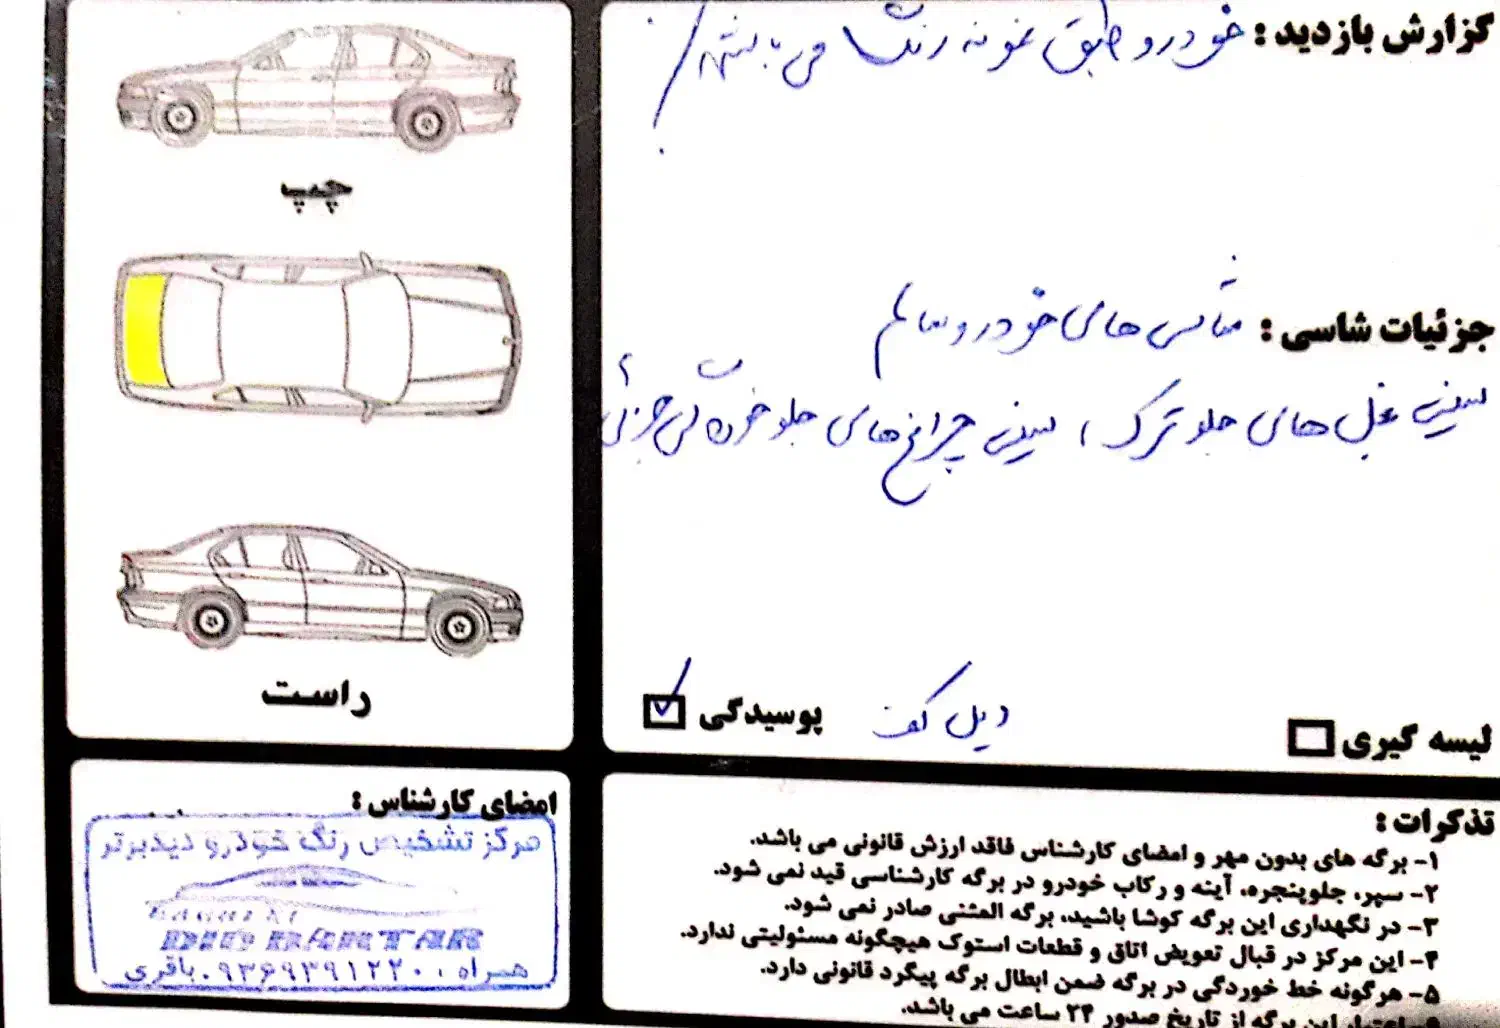 گزارش بازدید : خودرو طبق نمونه رنگ می باشد
جزئیات شاسی : شاسی های خودرو سالم
سینی بغل های جلو ترک ، سینی چراغ های جلو خوردگی جزئی
لیسه گیری
پوسیدگی دیل کف
چپ
راست
امضای کارشناس :
مرکز تشخیص رنگ خودرو دیدبرتر
DID BARTAR
همراه ۰۹۳۶۹۳۹۱۲۲۰ باقری
تذکرات :
۱- برگه های بدون مهر و امضای کارشناس فاقد ارزش قانونی می باشد.
۲- سپر، جلوپنجره، آینه و رکاب خودرو در برگه کارشناسی قید نمی شود.
۳- در نگهداری این برگه کوشا باشید، برگه المثنی صادر نمی شود.
۴- این مرکز در قبال تعویض اتاق و قطعات استوک هیچگونه مسئولیتی ندارد.
۵- هرگونه خط خوردگی در برگه ضمن ابطال برگه پیگرد قانونی دارد.
این برگه از تاریخ صدور ۲۴ ساعت می باشد.